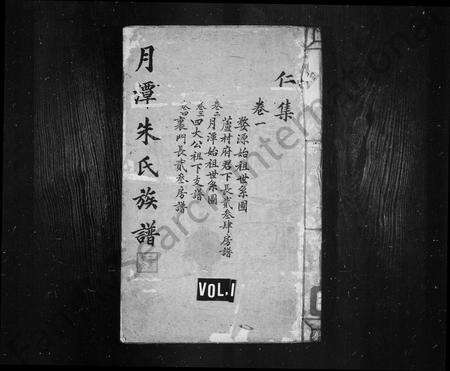 仁集
卷一
婺源始祖世系圖
蘆村府君下長貳叁肆房譜
卷二月潭始祖世系圖
卷三四大公祖下支譜
卷四裏門長貳叁房譜
月潭朱氏族譜
VOL.1